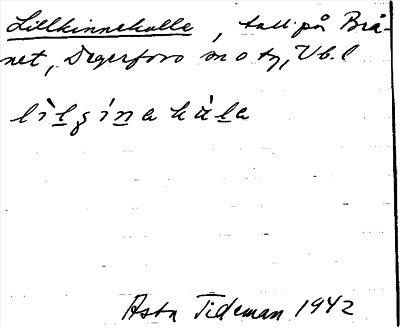 Lillkinnekulle, tall på Brå-
net, Degerfors sn o ty, Vb. l
lìlginakùla
Asta Tideman 1942